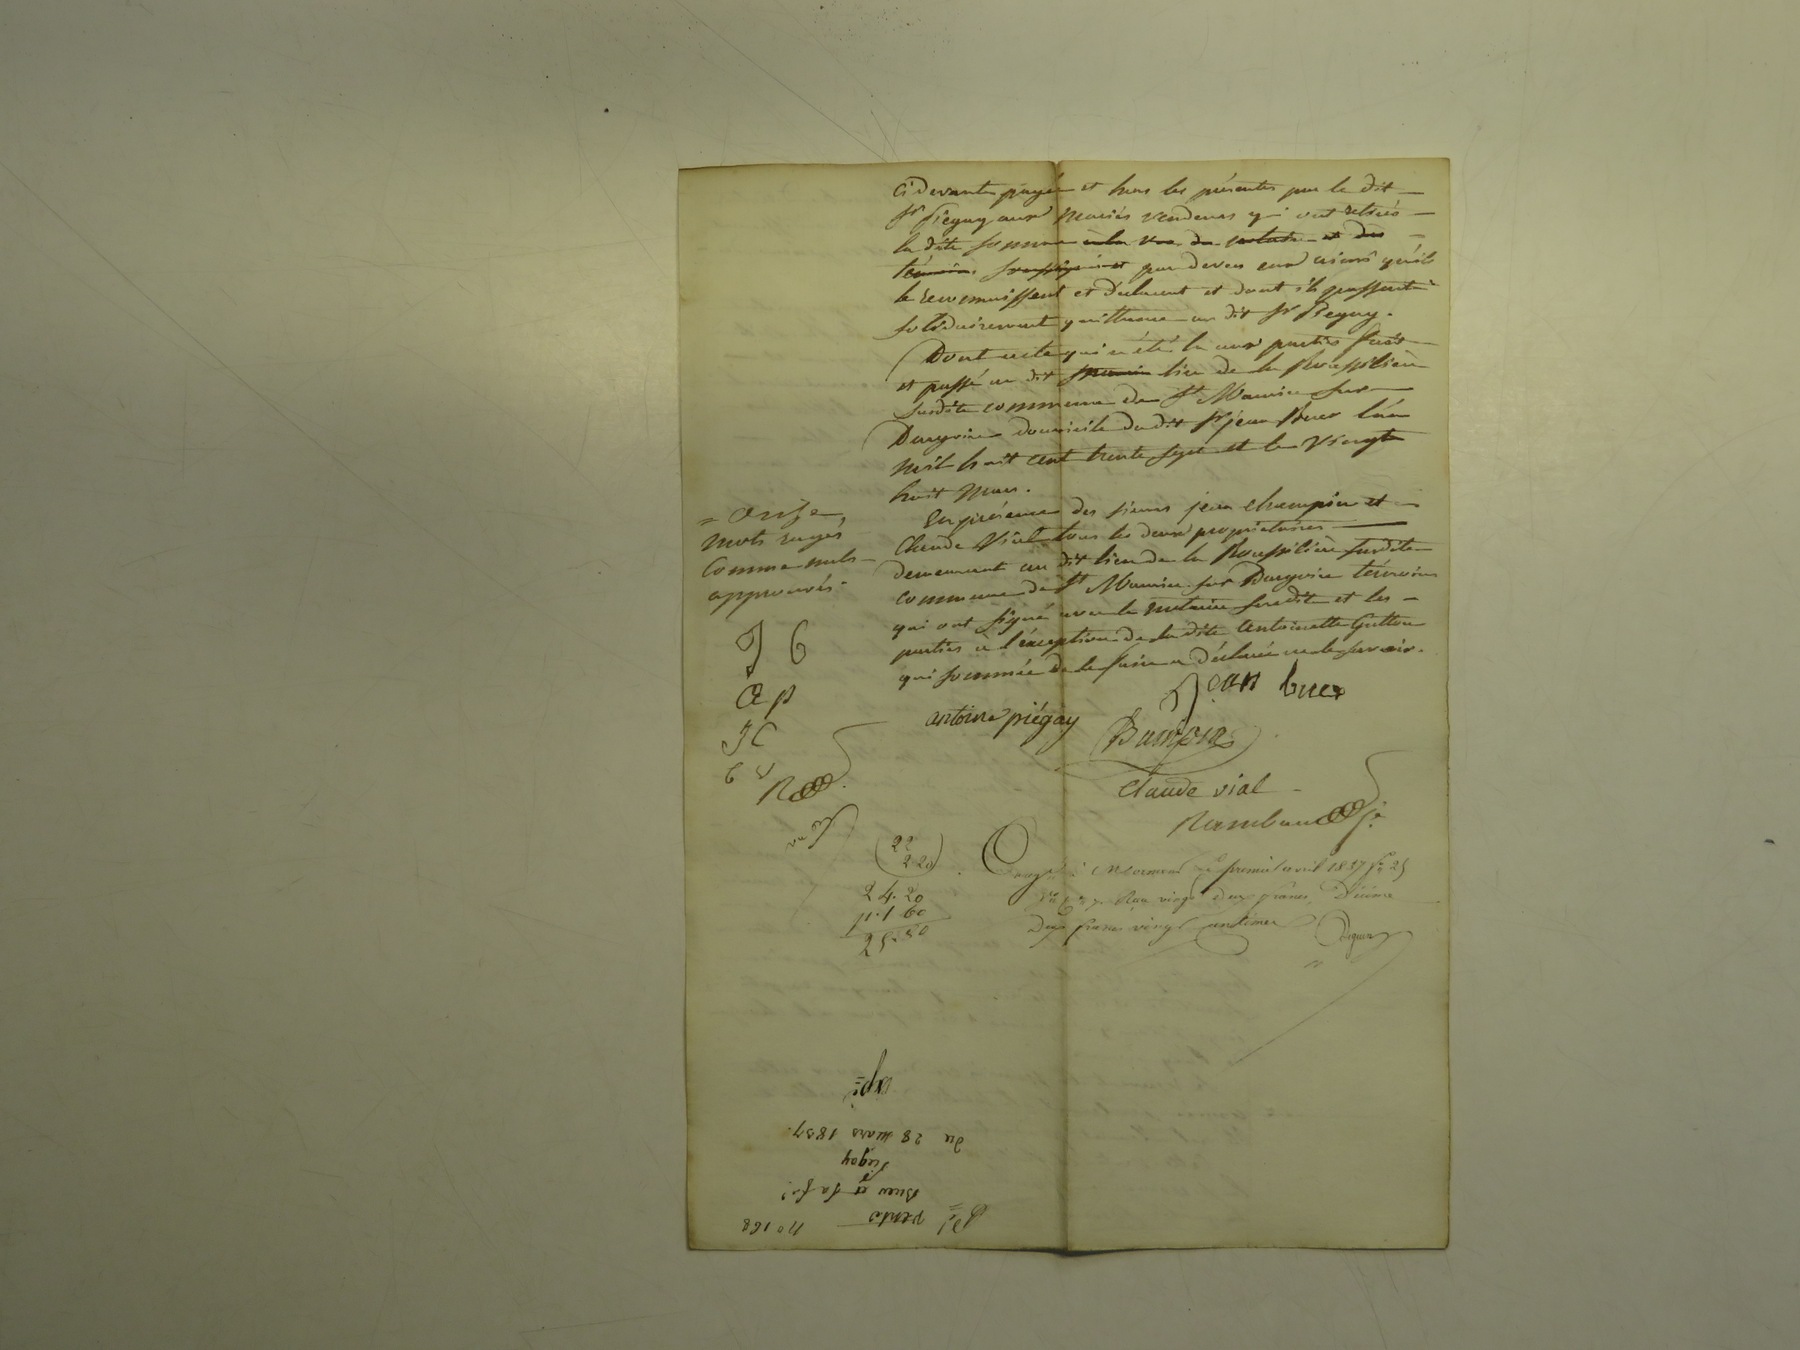 ci devant payée et hors les présentes par le dit
Sr Piegay aux mariés vendeurs qui ont retiré
la dite somme a la vue du notaire et des
témoins soussignés et par devers eux ainsi qu'ils
le reconnaissent et déclarent et dont ils passent
solidairement quittance au dit Sr Piegay.
Dont acte qui a été lu aux parties fait
et passé au dit lieu de la Roussilière
susdite commune de St Maurice sur
Dargoire domicile du dit Sr jean Buer l'an
mil huit cent trente sept et le vingt
huit mars.
En présence des sieurs jean champin et
Claude Vial tous les deux propriétaires
demeurant au dit lieu de la Roussilière susdite
commune de St Maurice sur Dargoire témoins
qui ont signé avec le notaire susdit et les
parties a l'exception de la dite Antoinette Gutton
qui sommée de le faire a déclaré ne le savoir.
= onze
mots rayés
comme nuls
approuvés
J C
a p
J C
C V
R
Jean buer
antoine piégay
Claude vial
Rambaud
22
2 20
24.20
p. 1 60
25.80
Enregé à Mornant le premier avril 1837 fo 25
Reçu vingt deux francs, Décime
Deux francs vingt centimes
Expé
du 28 mars 1837.
Piegay
Buer et sa fe
vente
no 168